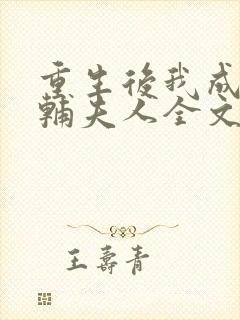 重生後我成
輔夫人全文
王壽青